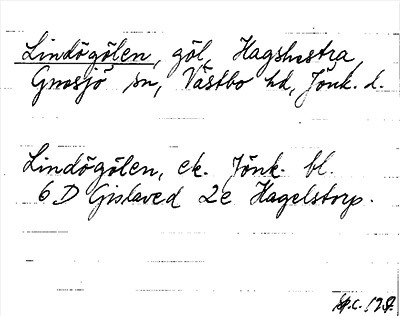 Lindögölen, göl, Hagshestra,
Gnosjö sn, Västbo hd, Jönk. l.
Lindögölen, ek. Jönk. bl.
6 D Gislaved 2e Hagelstorp.